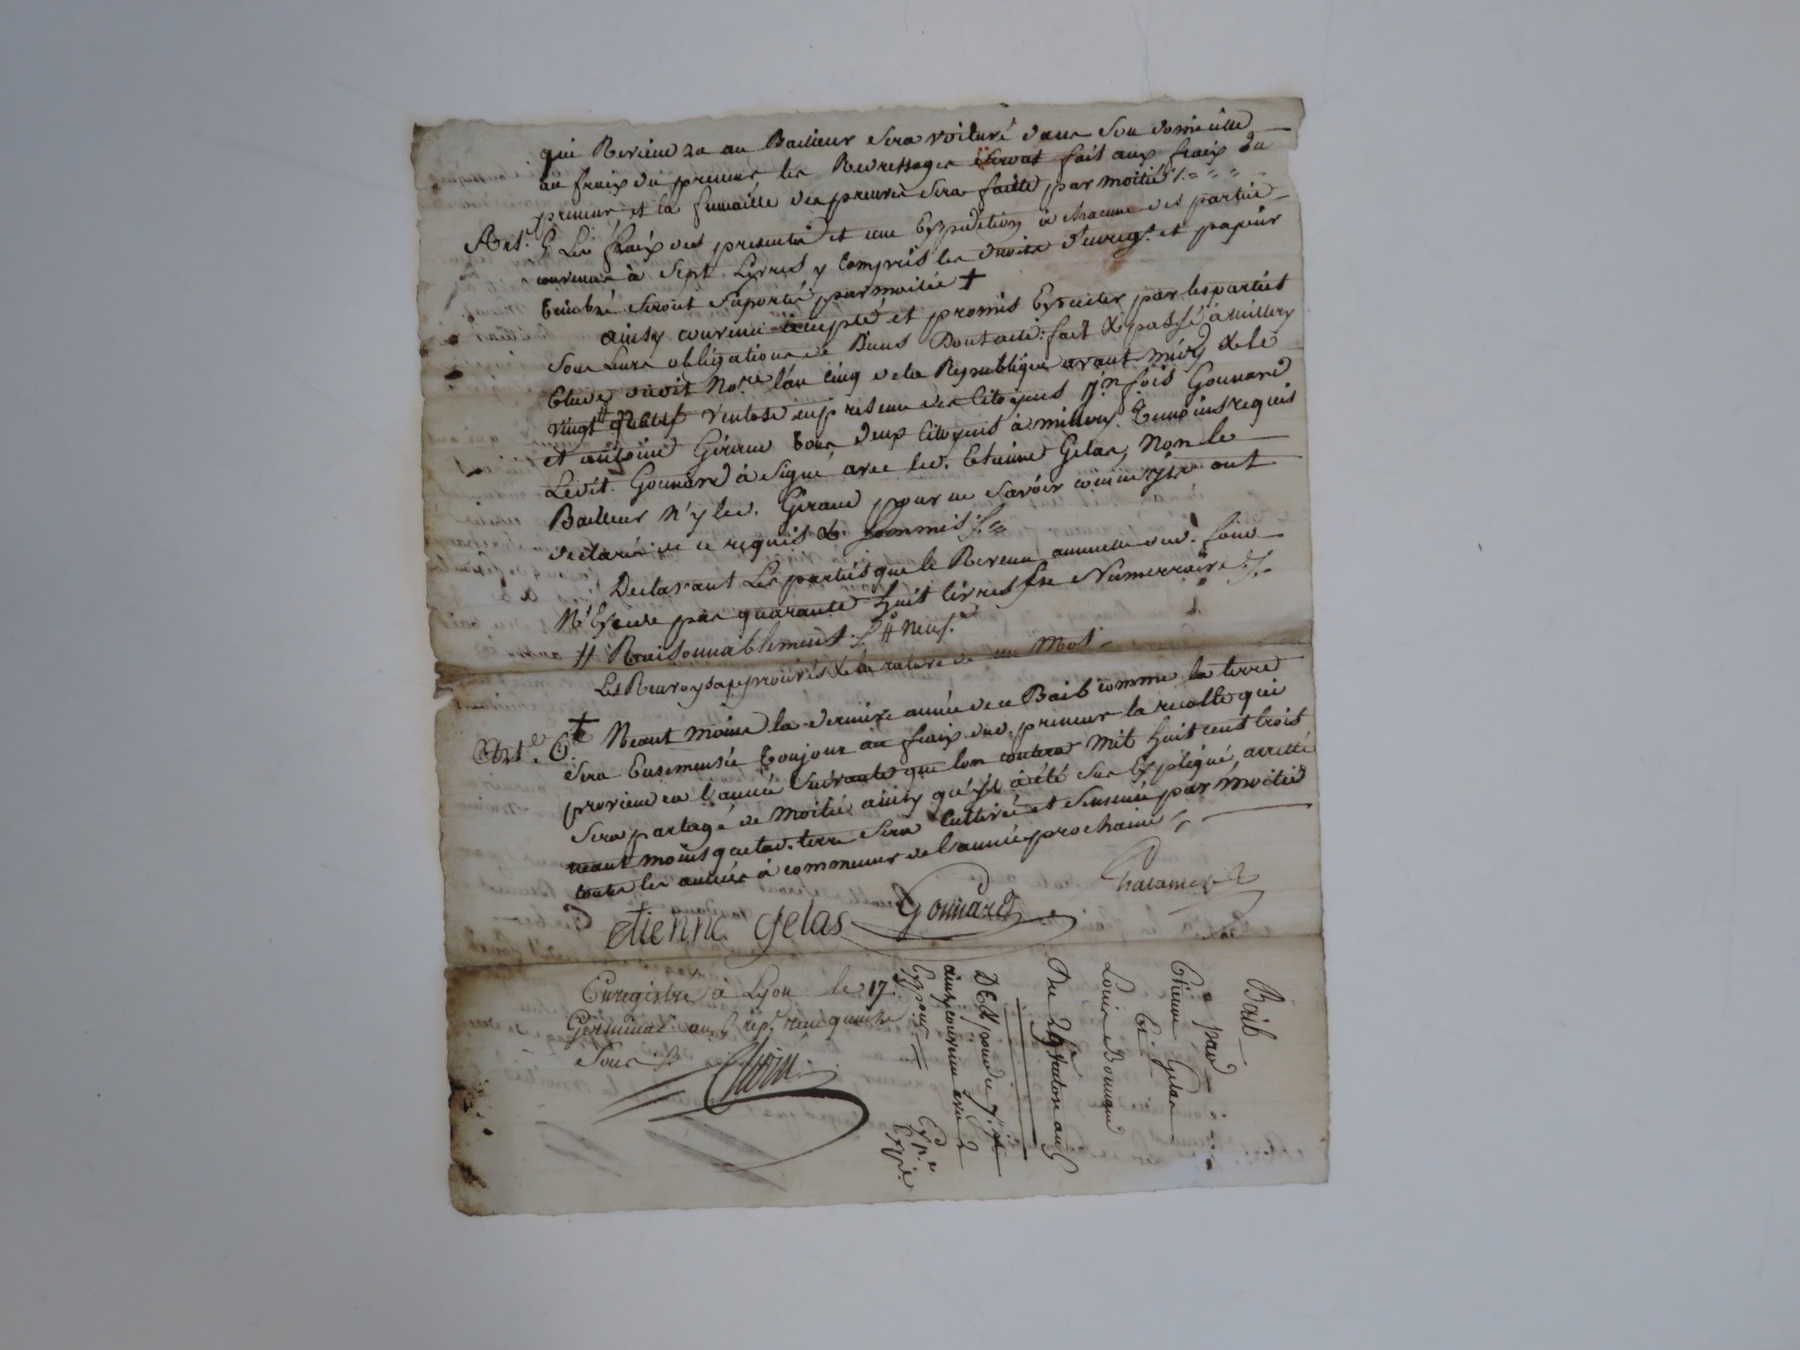 qui Reviendra au Bailleur Sera voituré dans Son domicille
au fraix du preneur les Redressages Seront fait aux fraix du
preneur et la fumaille des preuvés Sera faitte par moitié
Art. 5 Les fraix des presentes et une Expedition à chacune des partie
convenue à Sept Livres y Compris les droits d'enreg.t et papier
timbré Seront Suportés par moitié +
ainsy convenu accepté et promis Executer par les parties
Sous Leurs obligations de Biens Dont acte: fait & passé à millery
Etude dudit No.re l'an Cinq de la Republique avant midy & le
vingt neuf Ventose en presence des Citoyens J.n fois Gounard
et antoine Giraud tous deux Citoyens à millery Temoins requis
Ledit. Gounard à Signé avec led. Etienne Gelas, Non le
Bailleur N'y led. Giraud pour ne Savoir comme ils ont
declaré de ce requis & Sommés
Declarant Les parties que le Revenu annuelle dud. fond
N'Excede pas quarante huit livres En Numerraire
# Raisonnablement # Neuf
Les Renvoys approuvés & la rature de un Mot
Art. 6 + Neant moins la derniere année de ce Bail comme la terre
Sera Ensemensée toujour au fraix dud. preneur la recolte qui
proviendra l'année Suivante que lon contera Mil huit cent trois
Sera partagé de Moitié ainsy qu'il à été Sus Expliqué, arretté
neant moins que lad. terre Sera Cultivée et Semée par Moitié
toutes les années à commencer de l'année prochaine
etienne gelas Gounard
Enregistré à Lyon le 17
Germinal an 5 reçu quinze
Sous
Bail
par
Etienne Gelas
à
Louis Bonnard
Du 29 Ventose an 5
ainsy convenu avec